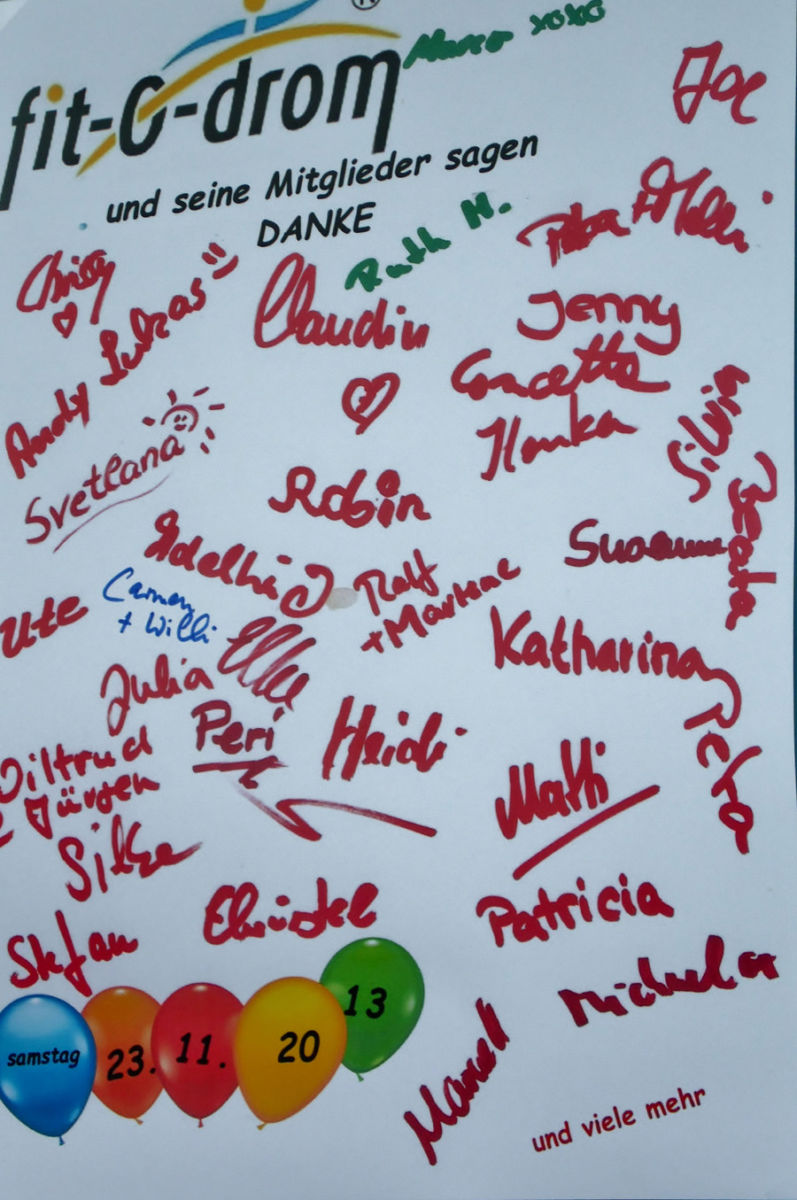 fit-O-drom®
Marco xoxo
Joe
und seine Mitglieder sagen
DANKE
Ruth M.
Chrissy
Claudia
Jenny
Andy Lukas
Concetta
Ilonka
Silvia
Svetlana
Robin
Beate
Susanne
Ralf
+ Marlene
Ute
Carmen
+ Willi
Katharina
Julia
Elke
Peri
Heidi
Petra
Wiltrud
Jürgen
Matti
Silke
Christel
Patricia
Stefan
Michaela
samstag 23. 11. 20 13
und viele mehr